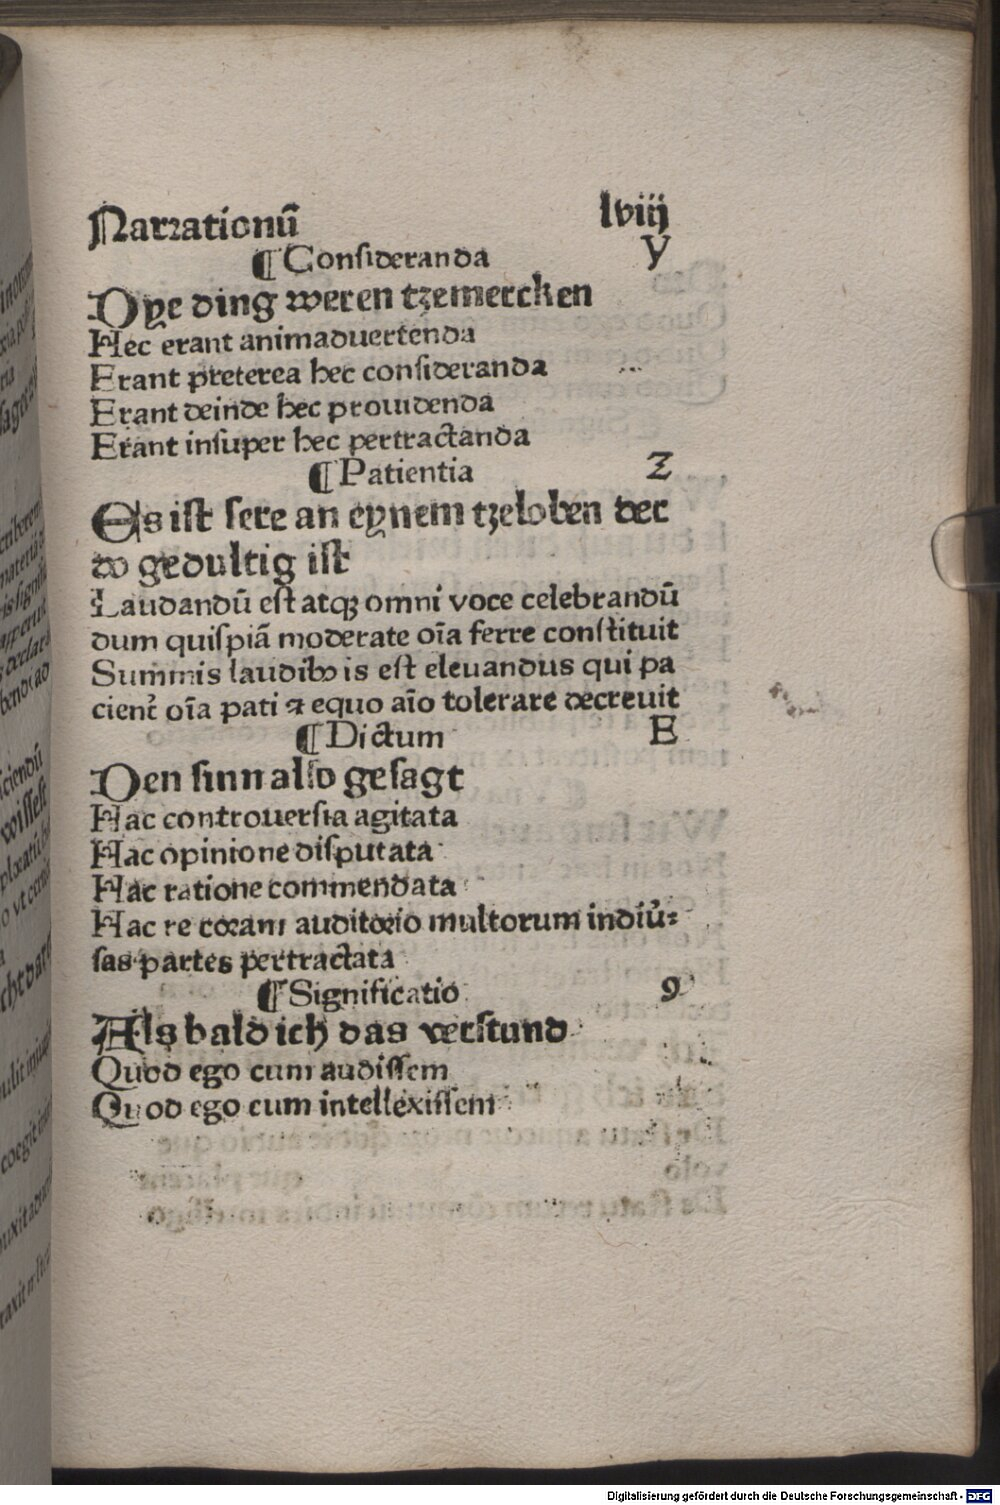 Narrationū lviij
¶ Consideranda y
Dye ding weren tzemercken
Hec erant animaduertenda
Erant preterea hec consideranda
Erant deinde hec prouidenda
Erant insuper hec pertractanda
¶ Patientia z
Es ist sere an eynem tzeloben der
do gedultig ist
Laudandū est atqꝫ omni voce celebrandū
dum quispiā moderate oīa ferre constituit
Summis laudibꝰ is est eleuandus qui pa
cient᷑ oīa pati ⁊ equo aīo tolerare decreuit
¶ Dictum E
Den sinn also gesagt
Hac controuersia agitata
Hac opinione disputata
Hac ratione commendata
Hac re coram auditorio multorum in diu᷑⸗
sas partes pertractata
¶ Significatio 9
Als bald ich das verstund
Quod ego cum audissem
Quod ego cum intellexissem
Digitalisierung gefördert durch die Deutsche Forschungsgemeinschaft - DFG